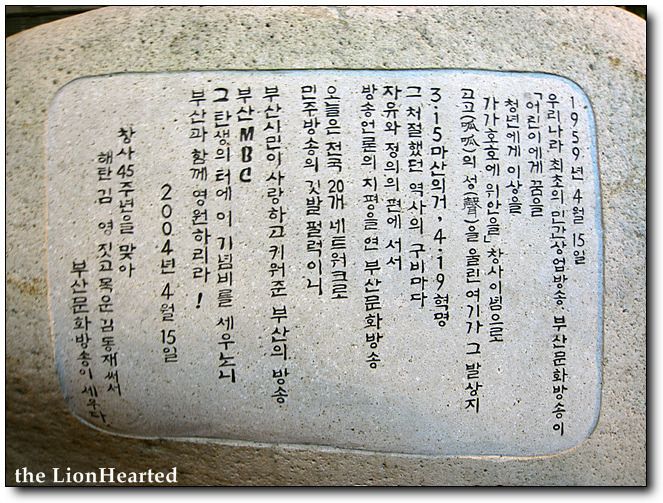 1959년 4월 15일
우리나라 최초의 민간상업방송, 부산문화방송이
「어린이에게 꿈을
청년에게 이상을
가가호호에 위안을」 창사이념으로
고고(呱呱)의 성(聲)을 울린 여기가 그 발상지
3·15마산의거, 4·19혁명
그 처절했던 역사의 구비마다
자유와 정의의 편에 서서
방송언론의 지평을 연 부산문화방송
오늘은 전국 20개 네트워크로
민주방송의 깃발 펄럭이니
부산시민이 사랑하고 키워준 부산의 방송
부산MBC
그 탄생의 터에 이 기념비를 세우노니
부산과 함께 영원하리라!
2004년 4월 15일
창사45주년을 맞아
해탄 김 영 짓고 목운 김동재 써서
부산문화방송이 세우다.
the LionHearted